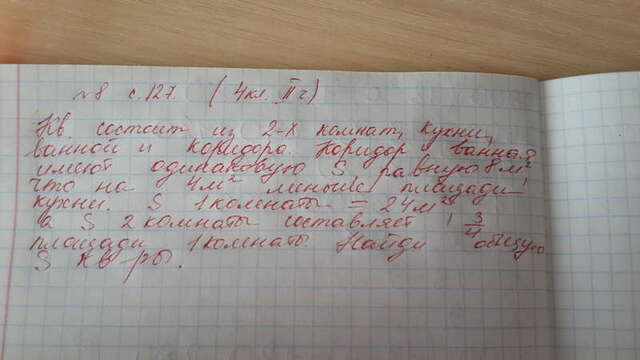 №8 с.127. (4кл. II ч)
Кв. состоит из 2-х комнат, кухни,
ванной и коридора. Коридор и ванная
имеют одинаковую S равную 8 м²
что на 4 м² меньше площади
кухни. S 1 комнаты = 24 м²
а S 2 комнаты составляет 3/4
площади 1 комнаты Найди общую
S кв-ры.